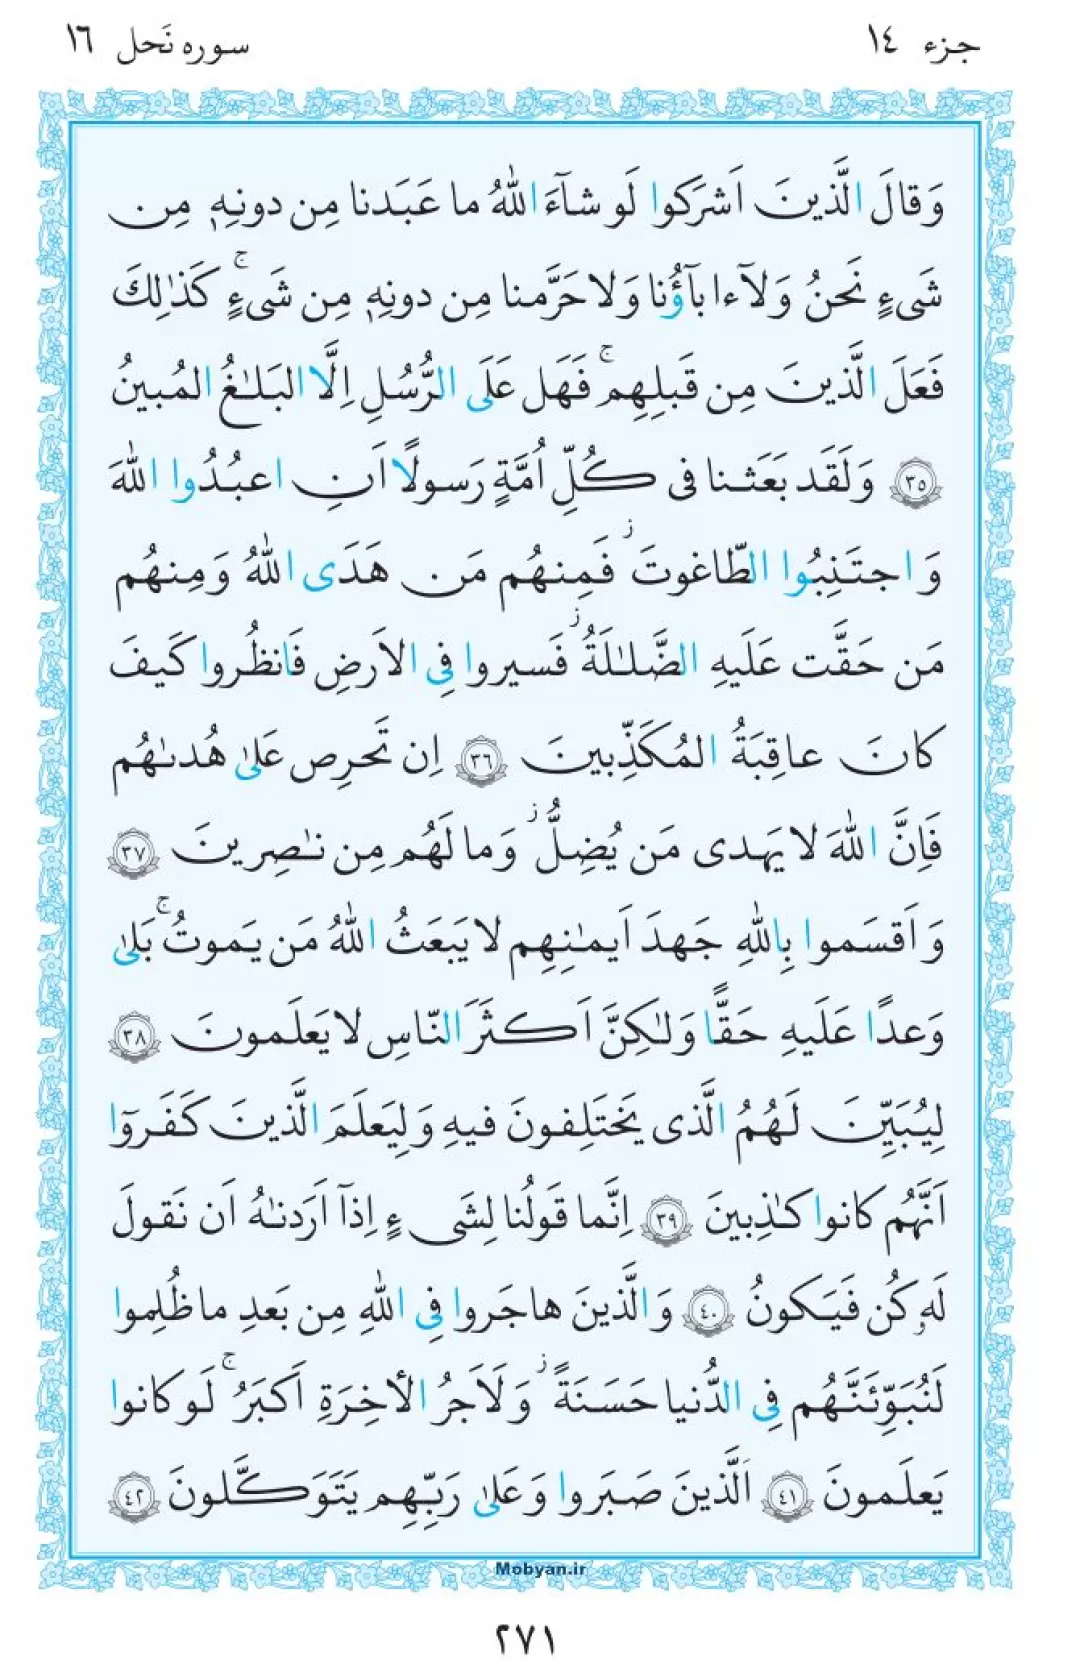 جزء ١٤
سوره نَحل ١٦
وَ قالَ الَّذينَ اَشرَكوا لَو شآءَ اللّٰهُ ما عَبَدنا مِن دونِهٖ مِن
شَىءٍ نَحنُ وَ لآ ءابآؤُنا وَ لا حَرَّمنا مِن دونِهٖ مِن شَىءٍ ۚ كَذٰلِكَ
فَعَلَ الَّذينَ مِن قَبلِهِم ۚ فَهَل عَلَى الرُّسُلِ اِلَّا البَلٰغُ المُبينُ
﴿٣٥﴾ وَ لَقَد بَعَثنا فى كُلِّ اُمَّةٍ رَسولًا اَنِ اعبُدُوا اللّٰهَ
وَ اجتَنِبُوا الطّاغوتَ ز فَمِنهُم مَن هَدَى اللّٰهُ وَ مِنهُم
مَن حَقَّت عَلَيهِ الضَّلٰلَةُ ز فَسيروا فِى الاَرضِ فَانظُروا كَيفَ
كانَ عاقِبَةُ المُكَذِّبينَ ﴿٣٦﴾ اِن تَحرِص عَلىٰ هُدىٰهُم
فَاِنَّ اللّٰهَ لا يَهدى مَن يُضِلُّ ز وَ ما لَهُم مِن نٰصِرينَ ﴿٣٧﴾
وَ اَقسَموا بِاللّٰهِ جَهدَ اَيمٰنِهِم لا يَبعَثُ اللّٰهُ مَن يَموتُ ۚ بَلىٰ
وَعدًا عَلَيهِ حَقًّا وَ لٰكِنَّ اَكثَرَ النّاسِ لا يَعلَمونَ ﴿٣٨﴾
لِيُبَيِّنَ لَهُمُ الَّذى يَختَلِفونَ فيهِ وَ لِيَعلَمَ الَّذينَ كَفَروٓا
اَنَّهُم كانوا كٰذِبينَ ﴿٣٩﴾ اِنَّما قَولُنا لِشَىءٍ اِذآ اَرَدنٰهُ اَن نَقولَ
لَهٗ كُن فَيَكونُ ﴿٤٠﴾ وَ الَّذينَ هاجَروا فِى اللّٰهِ مِن بَعدِ ما ظُلِموا
لَنُبَوِّئَنَّهُم فِى الدُّنيا حَسَنَةً ز وَ لَاَجرُ الأخِرَةِ اَكبَرُ ۚ لَو كانوا
يَعلَمونَ ﴿٤١﴾ اَلَّذينَ صَبَروا وَ عَلىٰ رَبِّهِم يَتَوَكَّلونَ ﴿٤٢﴾
Mobyan.ir
٢٧١